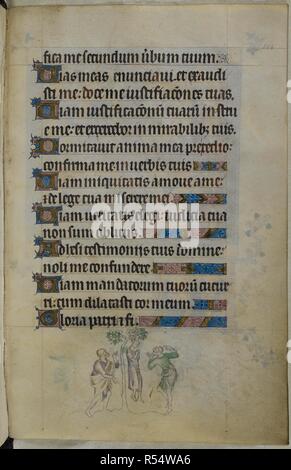 fica me secundum ũbum tuum.
Uias meas enunciaui. et exaudi
sti me: doce me iustificacōnes tuas.
Uiam iustificacōnũ tuarũ instrue
me: et exercebor in mirabilibꝫ tuis.
Dormitauit anima mea pre tedio:
confirma me in uerbis tuis
Uiam iniquitatis amoue a me:
de lege tua miserere mei
Uiam ueritatis elegi: iudicia tua
non sum oblitus.
Adhesi testimonijs tuis domine:
noli me confundere
Uiam mandatorum tuorũ cucur
ri: cum dilatasti cor meum
Gloria patri
alamy
R54WA6